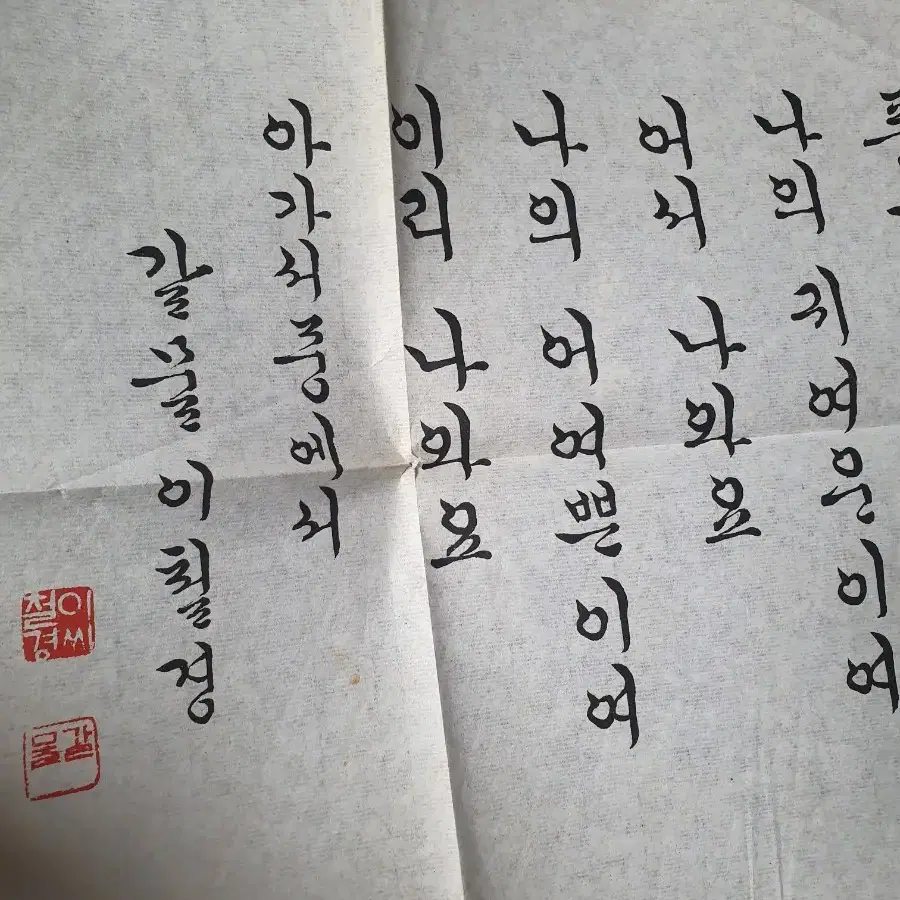 나의 귀여운 이여
어서 나와요
나의 어여쁜 이여
이리 나와요
아가서중에서
갈물 이철경
이씨철경
갈물